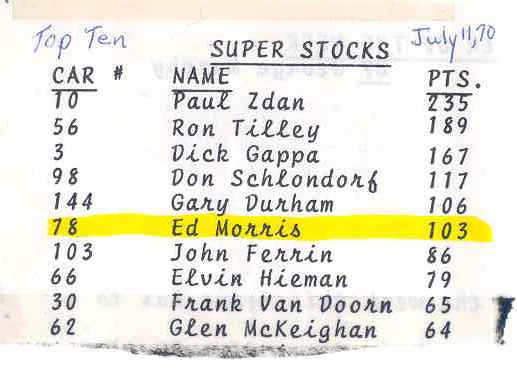 Top Ten July 11, 70
SUPER STOCKS
CAR # NAME PTS.
10 Paul Zdan 235
56 Ron Tilley 189
3 Dick Gappa 167
98 Don Schlondorf 117
144 Gary Durham 106
78 Ed Morris 103
103 John Ferrin 86
66 Elvin Hieman 79
30 Frank Van Doorn 65
62 Glen McKeighan 64